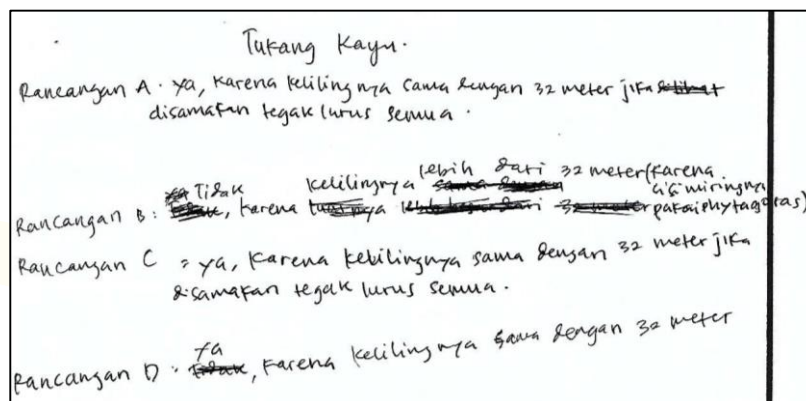 Tukang Kayu.
Rancangan A. ya, karena kelilingnya sama dengan 32 meter jika
disamakan tegak lurus semua.
Rancangan B: Tidak, karena kelilingnya lebih dari 32 meter (karena sisi miringnya pakai phytagoras)
Rancangan C = ya, karena kelilingnya sama dengan 32 meter jika
disamakan tegak lurus semua.
Rancangan D. ya, karena kelilingnya sama dengan 32 meter